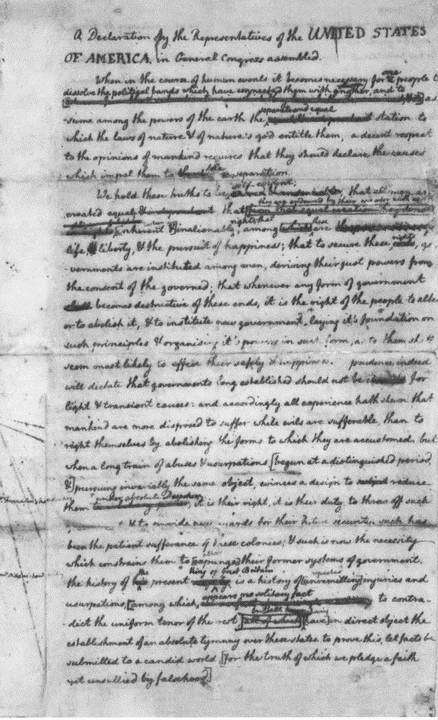 A Declaration by the Representatives of the UNITED STATES
OF AMERICA, in General Congress assembled.
When in the course of human events it becomes necessary for one people to
dissolve the political bands which have connected them with another, and to
sume among the powers of the earth the separate and equal station to
which the laws of nature & of nature's god entitle them, a decent respect
to the opinions of mankind requires that they should declare the causes
which impel them to the separation.
We hold these truths to be self-evident, that all men are
created equal that they are endowed by their creator with
inherent & inalienable among these are
life, liberty, & the pursuit of happiness; that to secure these rights, go
vernments are instituted among men, deriving their just powers from
the consent of the governed; that whenever any form of government
becomes destructive of these ends, it is the right of the people to alter
or to abolish it, & to institute new government, laying it's foundation on
such principles & organising it's powers in such form, as to them sh
seem most likely to effect their safety & happiness. prudence indeed
will dictate that governments long established should not be for
light & transient causes: and accordingly all experience hath shewn that
mankind are more disposed to suffer while evils are sufferable, than to
right themselves by abolishing the forms to which they are accustomed. but
when a long train of abuses & usurpations [begun at a distinguished period,
&] pursuing invariably the same object, evinces a design to reduce
them under absolute Despotism, it is their right, it is their duty, to throw off such
& to provide new guards for their future security. such has
been the patient sufferance of these colonies; & such is now the necessity
which constrains them to [expunge] their former systems of government.
the history of the present king of Great Britain is a history of [unremitting] injuries and
usurpations, [among which, appears no solitary fact to contra-
dict the uniform tenor of the rest [all of which] [have] in direct object the
establishment of an absolute tyranny over these states. to prove this, let facts be
submitted to a candid world [for the truth of which we pledge a faith
yet unsullied by falsehood]